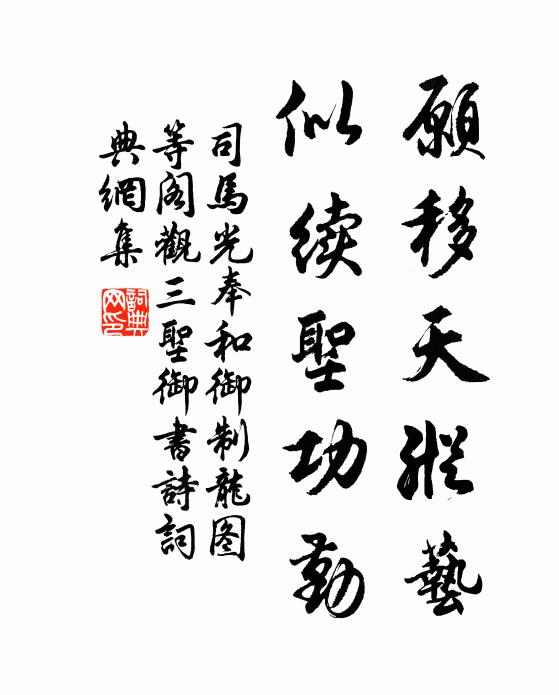 願移天縱藝
似续聖功勤
司馬光奉和御制龍图
等阁觀三聖御書詩詞
典網集
詞典网印